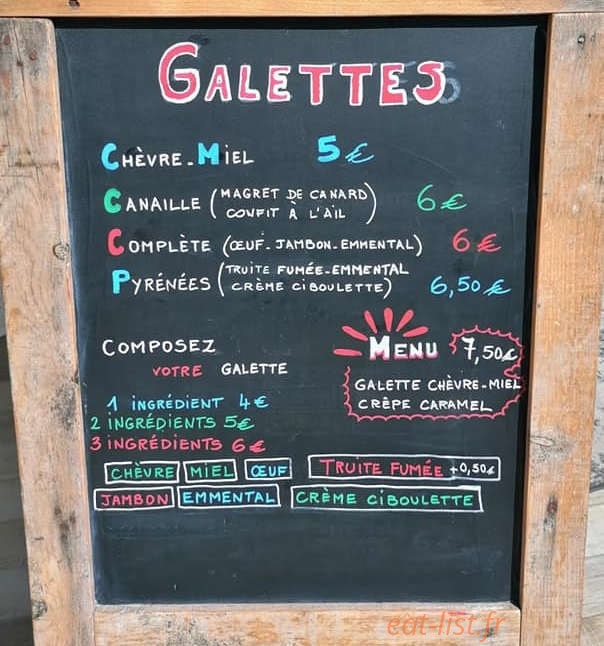 GALETTES
CHÈVRE-MIEL 5€
CANAILLE (MAGRET DE CANARD
CONFIT À L'AIL) 6€
COMPLÈTE (ŒUF-JAMBON-EMMENTAL) 6€
PYRÉNÉES (TRUITE FUMÉE-EMMENTAL
CRÈME CIBOULETTE) 6,50€
COMPOSEZ
VOTRE GALETTE
1 INGRÉDIENT 4€
2 INGRÉDIENTS 5€
3 INGRÉDIENTS 6€
MENU 7,50€
GALETTE CHÈVRE-MIEL
CRÊPE CARAMEL
CHÈVRE MIEL ŒUF TRUITE FUMÉE +0,50€
JAMBON EMMENTAL CRÈME CIBOULETTE
eat-list.fr